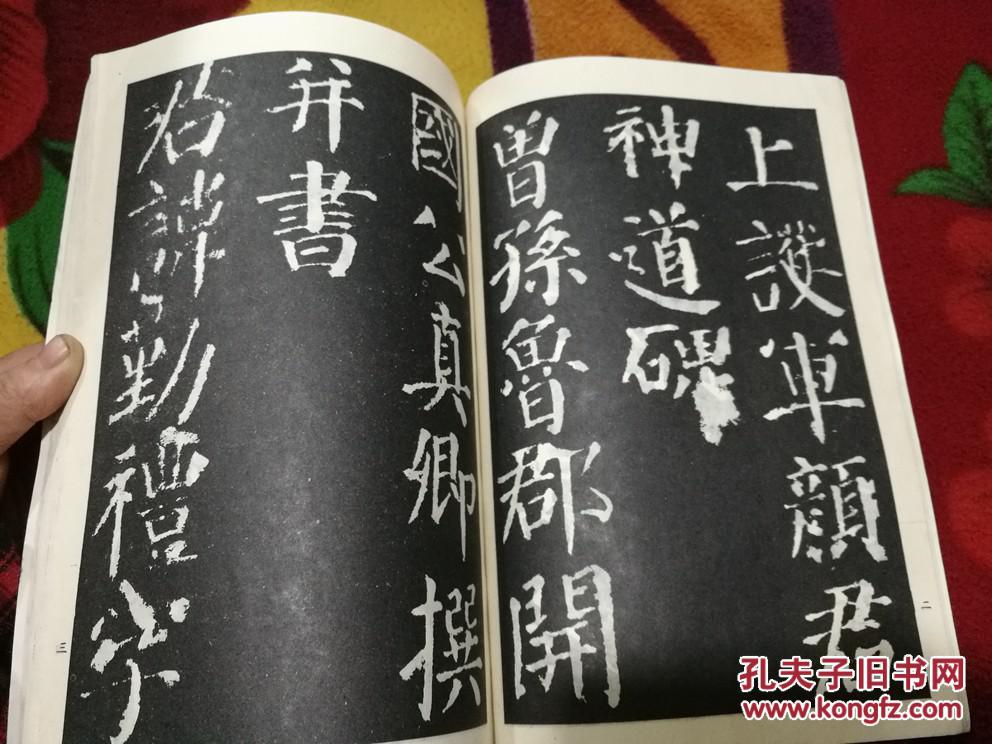 上護軍顏君
神道碑
曾孫魯郡開
二
國公真卿撰
并書
君諱勤禮字
三
孔夫子旧书网
www.kongfz.com